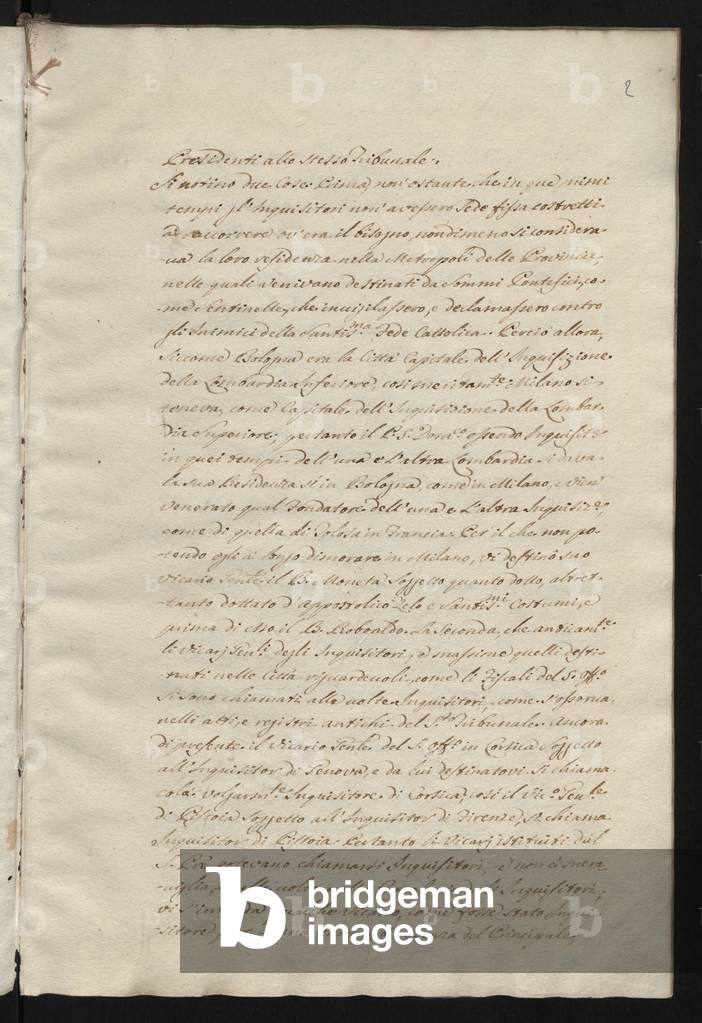 2
Presidenti allo stesso Tribunale.
Si notino due Cose. Prima, non'ostante che in que' primi
tempi gl'Inquisitori non'avessero Sede fissa costretti
à accorrere ov'era il bisogno, nondimeno si considera-
va la loro residenza nella Metropoli delle Provincie,
nelle quali venivano destinati da Sommi Pontefici, co-
me Sentinelle, che invigilassero, e declamassero contro
gli Inimici della Santis.ma Fede Cattolica. Perciò allora,
siccome Bologna era la Città Capitale dell'Inquisizione
della Lombardia Inferiore, così meritam.te Milano si
teneva, come Capitale dell'Inquisizione della Lombar-
dia Superiore; pertanto il P. S. Dom.co essendo Inquisit.e
in quei tempi dell'una e l'altra Lombardia si dava
la sua Residenza sì in Bologna, come in Milano, e vien'
venerato qual Fondatore dell'una e l'altra Inquisiz.e
come di quella di Tolosa in Francia. Per il che non po-
tendo egli à longo dimorare in Milano, vi destinò suo
Vicario Gen.le il B. Moneta Soggetto quanto dotto, altret-
tanto dottato d'Appostolico Zelo e Santis.mi Costumi, e
prima di esso il B. Roboaldo. La Seconda, che anticam.te
li Vicarj Gen.li degli Inquisitori, e massime quelli desti-
nati nelle Città riguardevoli, come li Fiscali del S. Off.o
si sono chiamati alle volte Inquisitori, come s'osserva
nelli atti, e registri antichi del S.to Tribunale. Ancora
di presente il Vicario Gen.le del S. Off.o in Corsica Soggetto
all'Inquisitor di Genova, e da lui destinatovi si chiama
colà volgarm.te Inquisitore di Corsica, così il Vic.o Gen.le
di Pistoia Soggetto all'Inquisitor di Firenze, si chiama
Inquisitor di Pistoia. Pertanto li Vicarj istituiti dal
S. P.re potevano chiamarsi Inquisitori, e non è mera-
viglia, Inquisitori,
Vicario, come fosse stato Inqui-
sitore, del Principale.
bridgeman
images